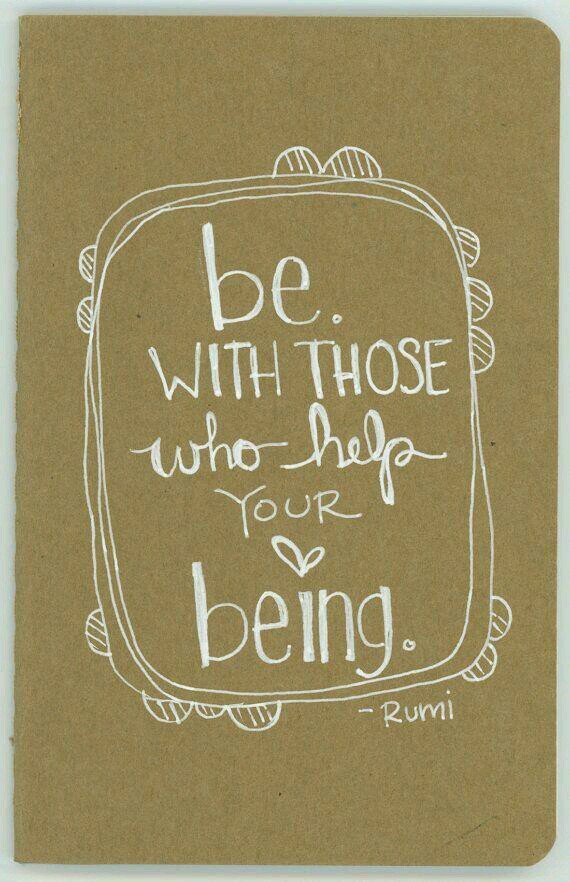 be.
WITH THOSE
who help
YOUR
being.
- Rumi